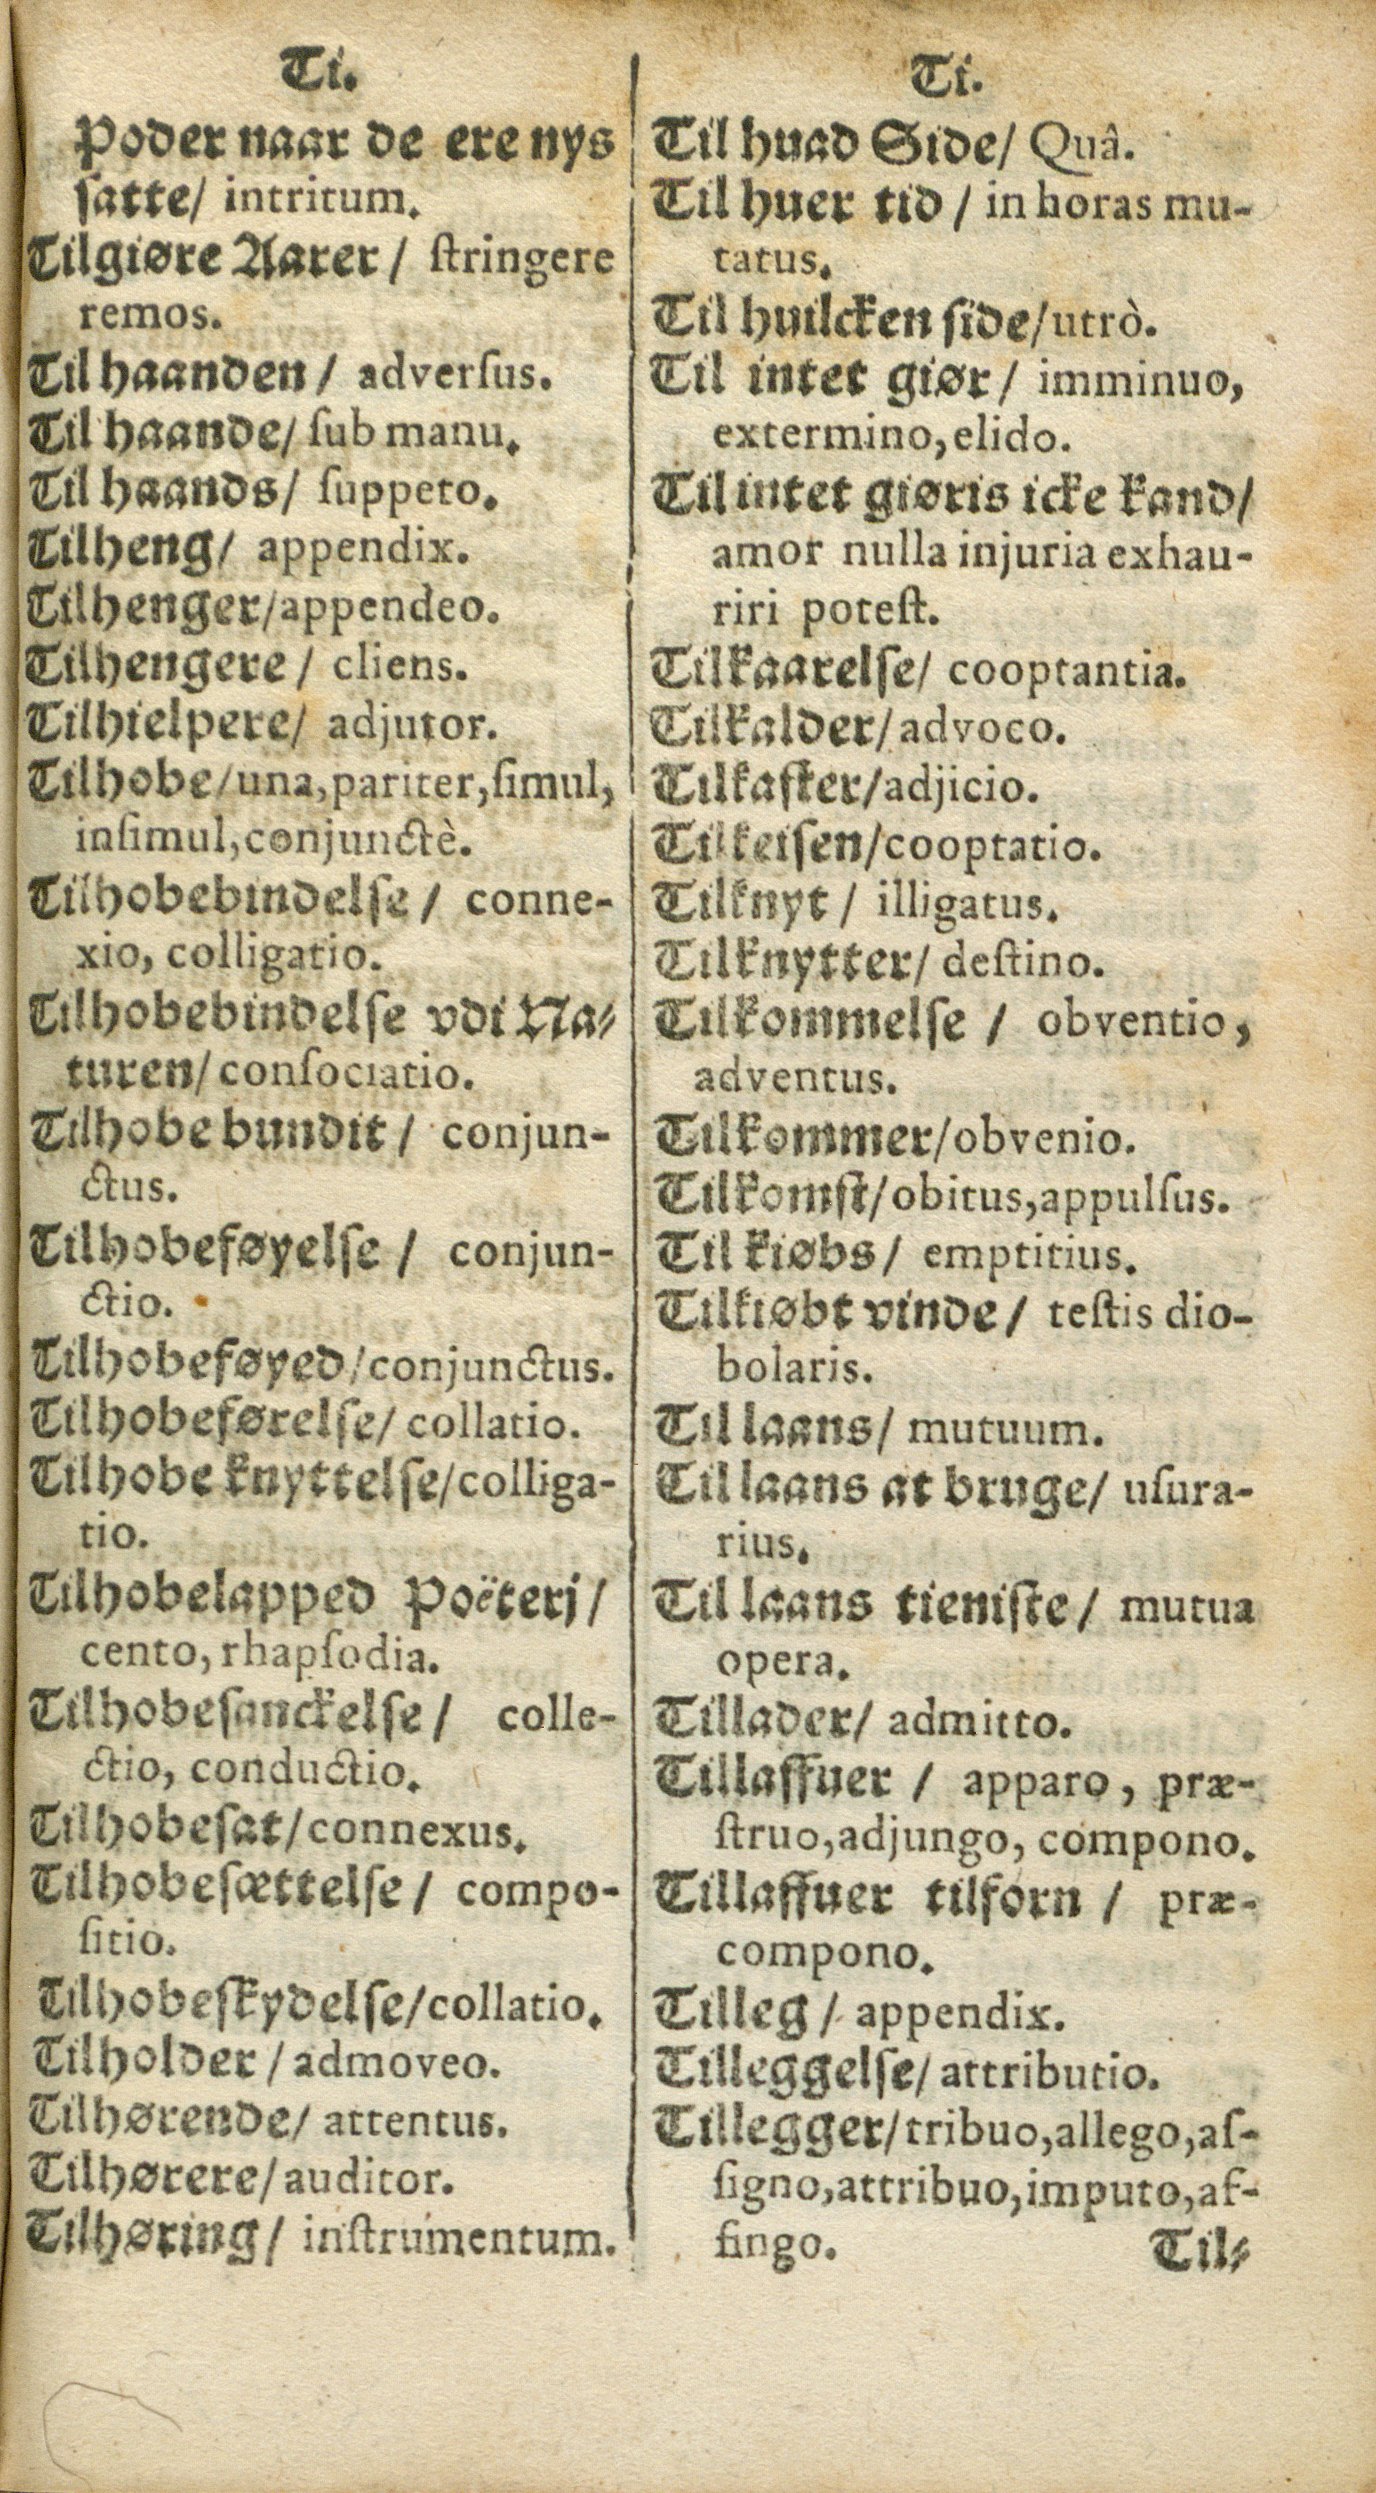 Ti.
Poder naar de ere nys
ſatte/ intritum.
Tilgiøre Aarer/ ſtringere
remos.
Til haanden/ adverſus.
Til haande/ ſub manu.
Til haands/ ſuppeto.
Tilheng/ appendix.
Tilhenger/appendeo.
Tilhengere/ cliens.
Tilhielpere/ adjutor.
Tilhobe/una,pariter,ſimul,
inſimul,conjunctè.
Tilhobebindelſe/ conne-
xio, colligatio.
Tilhobebindelſe vdi Na-
turen/conſociatio.
Tilhobe bundit/ conjun-
ctus.
Tilhobeføyelſe/ conjun-
ctio.
Tilhobeføyed/conjunctus.
Tilhobeførelſe/ collatio.
Tilhobe knyttelſe/colliga-
tio.
Tilhobelapped Poëterj/
cento, rhapſodia.
Tilhobeſanckelſe/ colle-
ctio, conductio.
Tilhobeſat/connexus.
Tilhobeſættelſe/ compo-
ſitio.
Tilhobeſkydelſe/collatio.
Tilholder/admoveo.
Tilhørende/ attentus.
Tilhørere/auditor.
Tilhøring/ inſtrumentum.
Ti.
Til huad Side/ Quâ.
Til huer tid/ in horas mu-
tatus.
Til huilcken ſide/utrò.
Til intet giør/ imminuo,
extermino,elido.
Til intet giøris icke kand/
amor nulla injuria exhau-
riri poteſt.
Tilkaarelſe/ cooptantia.
Tilkalder/advoco.
Tilkaſter/adjicio.
Tilkeiſen/cooptatio.
Tilknyt/ illigatus.
Tilknytter/ deſtino.
Tilkommelſe/ obventio,
adventus.
Tilkommer/obvenio.
Tilkomſt/obitus,appulſus.
Til kiøbs/ emptitius.
Tilkiøbt vinde/ teſtis dio-
bolaris.
Til laans/ mutuum.
Til laans at bruge/ uſura-
rius.
Til laans tieniſte/ mutua
opera.
Tillader/ admitto.
Tillaffuer/ apparo, præ-
ſtruo,adjungo, compono.
Tillaffuer tilforn/ præ-
compono.
Tilleg/ appendix.
Tilleggelſe/ attributio.
Tillegger/tribuo,allego,aſ-
ſigno,attribuo,imputo,af-
fingo.
Til-